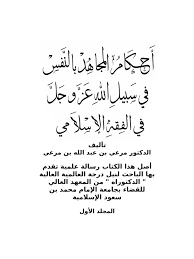 أحكام المجاهد بالنفس
في سبيل الله عز وجل
في الفقه الإسلامي
تأليف
الدكتور مرعي بن عبد الله بن مرعي
أصل هذا الكتاب رسالة علمية تقدم
بها الباحث لنيل درجة العالمية العالية
" الدكتوراه " من المعهد العالي
للقضاء بجامعة الإمام محمد بن
سعود الإسلامية
المجلد الأول